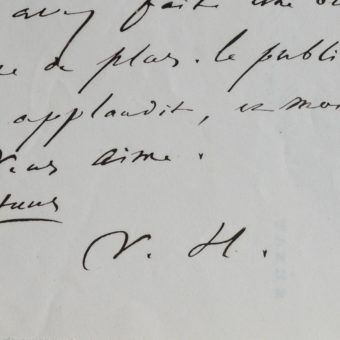 avez fait une
de plus. le publi
applaudit, et moi
Vous aime.
V. H.